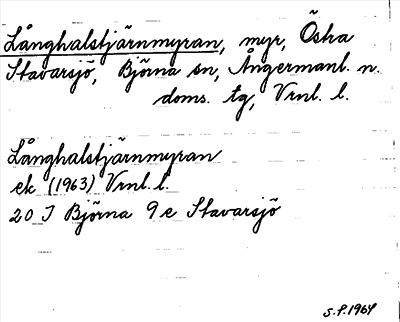 Långhalstjärnmyran, myr, Östra
Stavarsjö, Björna sn, Ångermanl. n.
doms. tg, Vrnl. l.
Långhalstjärnmyran
ek (1963) Vrnl. l.
20 J Björna 9 e Stavarsjö
S.F. 1964